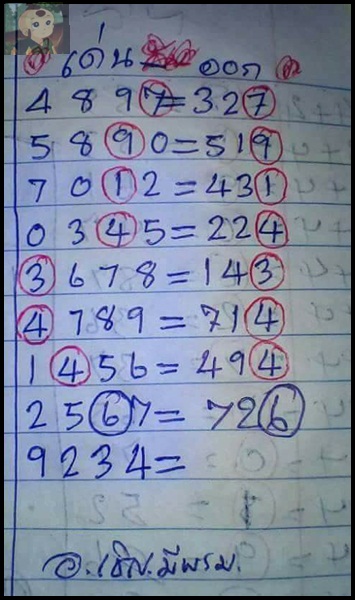 เด่น ออก
4 8 9 7 = 327
5 8 9 0 = 519
7 0 1 2 = 431
0 3 4 5 = 224
3 6 7 8 = 143
4 7 8 9 = 714
1 4 5 6 = 494
2 5 6 7 = 726
9 2 3 4 =
อ.เชิญ.มีพรม.